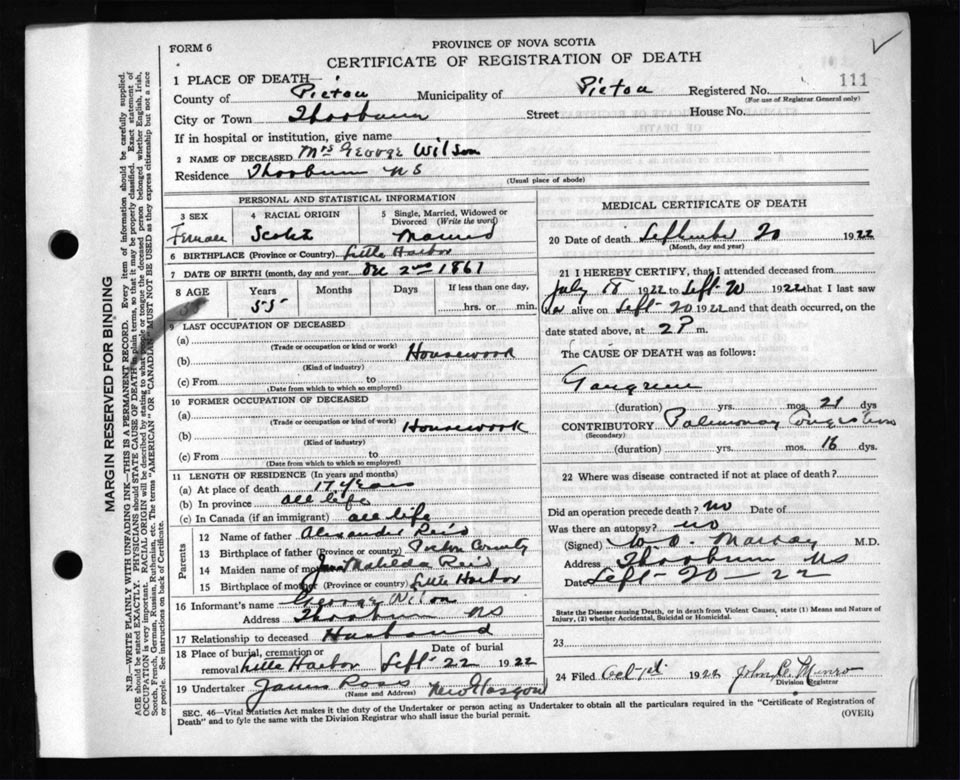 FORM 6
PROVINCE OF NOVA SCOTIA
CERTIFICATE OF REGISTRATION OF DEATH
111
1 PLACE OF DEATH—
County of Pictou Municipality of Pictou Registered No.
(For use of Registrar General only)
City or Town Thorburn Street House No.
If in hospital or institution, give name
2 NAME OF DECEASED Mrs George Wilson
Residence Thorburn NS
(Usual place of abode)
PERSONAL AND STATISTICAL INFORMATION
3 SEX
Female
4 RACIAL ORIGIN
Scotch
5 Single, Married, Widowed or Divorced (Write the word)
Married
6 BIRTHPLACE (Province or Country) Little Harbor
7 DATE OF BIRTH (month, day and year) Dec 2nd 1867
8 AGE Years Months Days If less than one day,
55 hrs. or min.
9 LAST OCCUPATION OF DECEASED
(a)
(Trade or occupation or kind or work)
(b) Housework
(Kind of industry)
(c) From to
(Date from which to which so employed)
10 FORMER OCCUPATION OF DECEASED
(a)
(Trade or occupation or kind of work)
(b) Housework
(Kind of industry)
(c) From to
(Date from which to which so employed)
11 LENGTH OF RESIDENCE (In years and months)
(a) At place of death 17 years
(b) In province all life
(c) In Canada (if an immigrant) all life
Parents
12 Name of father Alexander
13 Birthplace of father (Province or country) Pictou County
14 Maiden name of mother Matilda
15 Birthplace of mother (Province or country) Little Harbor
16 Informant's name George Wilson
Address Thorburn NS
17 Relationship to deceased Husband
18 Place of burial, cremation or removal Little Harbor
Date of burial
Sept 22 1922
19 Undertaker James Ross New Glasgow
(Name and Address)
MEDICAL CERTIFICATE OF DEATH
20 Date of death September 20 1922
(Month, day and year)
21 I HEREBY CERTIFY, that I attended deceased from
July 18 1922 to Sept 20 1922 that I last saw
her alive on Sept 20 1922 and that death occurred, on
date stated above, at 2 P m.
The CAUSE OF DEATH was as follows:
Gangrene
(duration) yrs. mos. 21 dys
CONTRIBUTORY Pulmonary Congestion
(Secondary)
(duration) yrs. mos. 16 dys.
22 Where was disease contracted if not at place of death?
Did an operation precede death? no Date of
Was there an autopsy? no
(Signed) M.D.
Address Thorburn NS
Date Sept 20 – 22
State the Disease causing Death, or in death from Violent Causes, state (1) Means and Nature of
Injury, (2) whether Accidental, Suicidal or Homicidal.
23
24 Filed Oct 1st 1922 John C. Munro
Division Registrar
SEC. 46—Vital Statistics Act makes it the duty of the Undertaker or person acting as Undertaker to obtain all the particulars required in the "Certificate of Registration of
Death" and to fyle the same with the Division Registrar who shall issue the burial permit. (OVER)
MARGIN RESERVED FOR BINDING
N.B.—WRITE PLAINLY WITH UNFADING INK—THIS IS A PERMANENT RECORD. Every item of information should be carefully supplied.
AGE should be stated EXACTLY. PHYSICIANS should STATE CAUSE OF DEATH in plain terms, so that it may be properly classified. Exact statement of
OCCUPATION is very important. RACIAL ORIGIN will be described by stating to what people or tongue the deceased person belonged whether English, Irish,
Scotch, French, German, Russian, Ruthenian, etc. The terms "AMERICAN" OR "CANADIAN" MUST NOT BE USED as they express citizenship but not a race
or people. See instructions on back of Certificate.